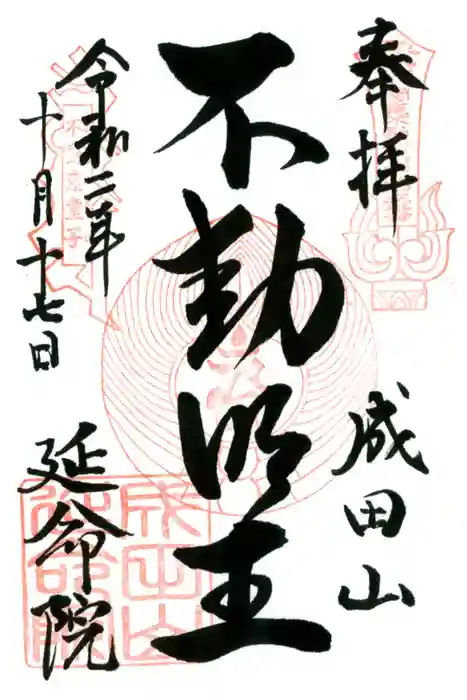 奉拝
成田山
不動明王
令和二年
十月十七日
延命院